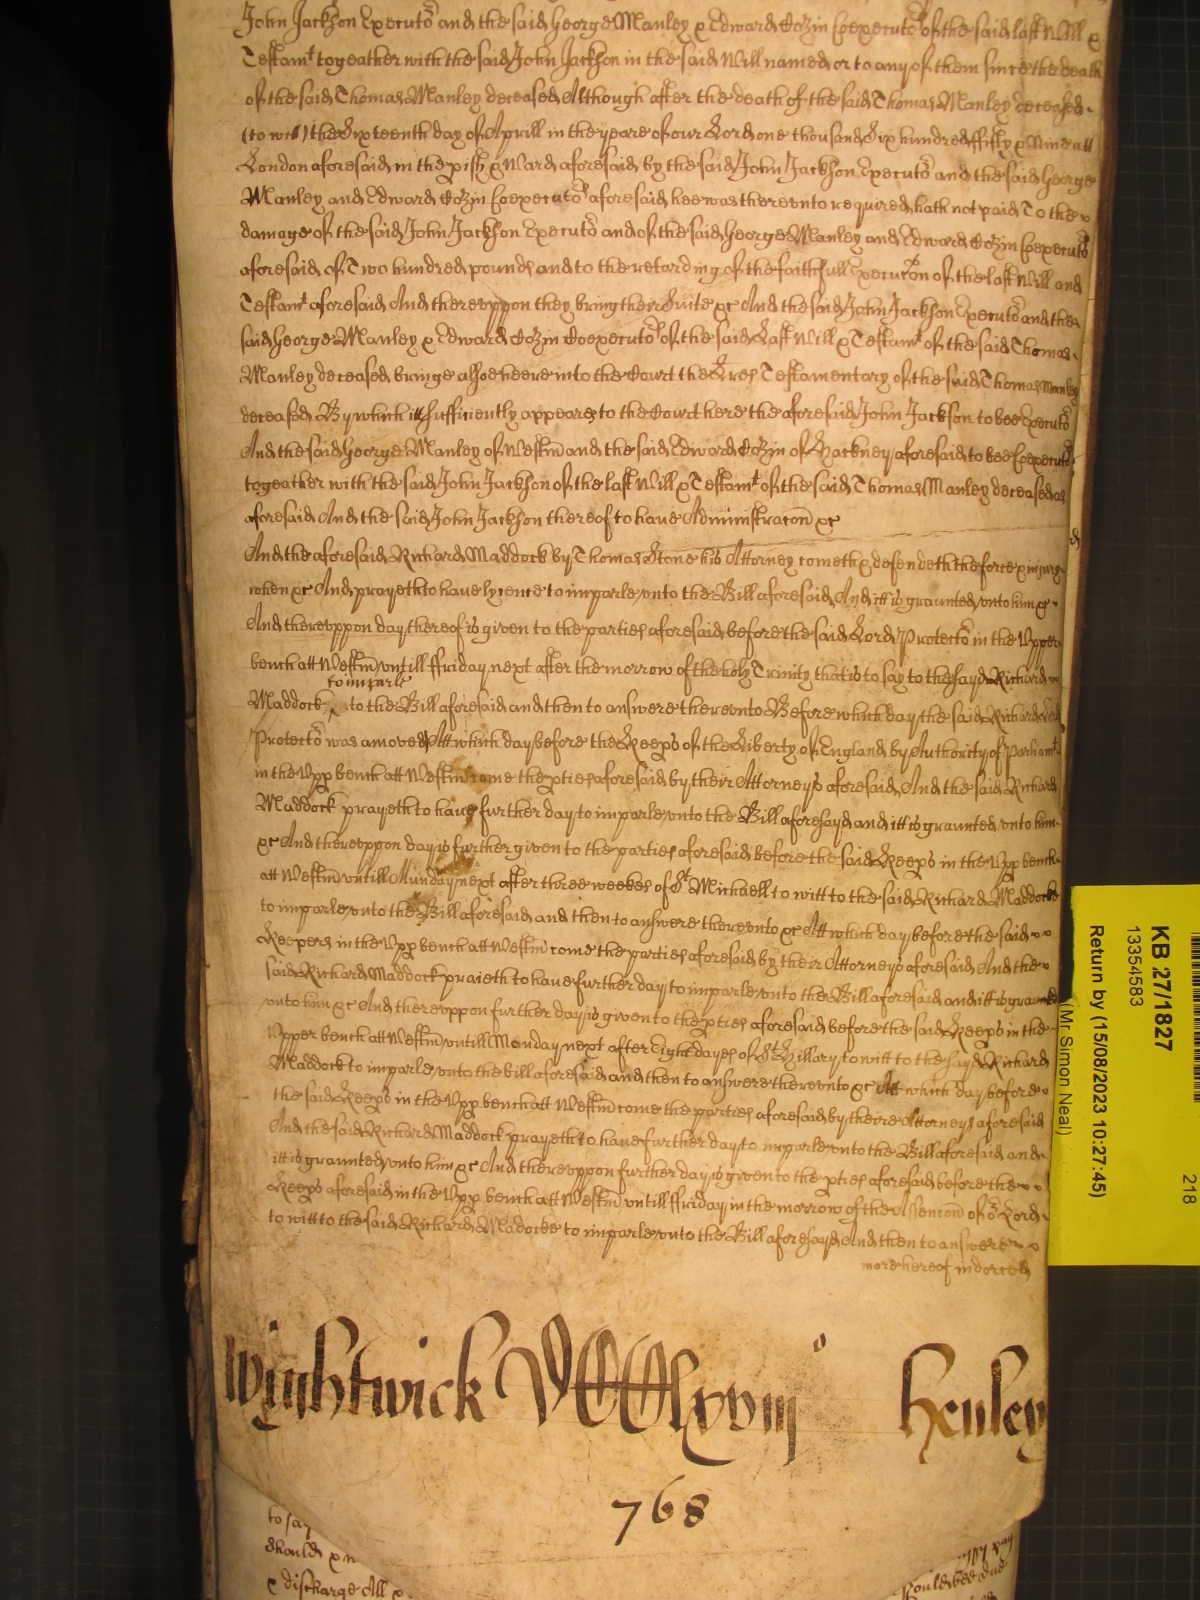 John Jackson Executor and the said George Manley & Edward Cozin Coexecutors of the said last Will &
Testamt togeather with the said John Jackson in the said Will named or to any of them since the death
of the said Thomas Manley deceased Although after the death of the said Thomas Manley deceased
(to wit) the Sixteenth day of Aprill in the yeare of our Lord one thousand six hundred ffifty & Nine att
London aforesaid in the pish & Ward aforesaid by the said John Jackson Executor and the said George
Manley and Edward Cozin Coexecutors aforesaid hee was therevnto required hath not paid To the
damage of the said John Jackson Executor and of the said George Manley and Edward Cozin Coexecutors
aforesaid of Two hundred pounds and to the retarding of the faithfull Execucon of the last Will and
Testamt aforesaid And therevppon they bring their Suite &c And the said John Jackson Executor and the
said George Manley & Edward Cozin Coexecutors of the said Last Will & Testamt of the said Thomas
Manley deceased bringe alsoe heere into the Court the Lres Testamentary of the said Thomas Manley
deceased By which itt sufficiently appeares to the Court here the aforesaid John Jackson to bee Executor
And the said George Manley of Westm and the said Edward Cozin of Hackney aforesaid to bee Coexecutors
togeather with the said John Jackson of the last Will & Testamt of the said Thomas Manley deceased as
aforesaid And the said John Jackson thereof to haue Administracon &c
And the aforesaid Richard Maddock by Thomas Stone his Attorney cometh & defendeth the force & iniury
when &c And prayeth to haue lycence to imparle vnto the Bill aforesaid And itt is graunted vnto him &c
And therevppon day thereof is given to the parties aforesaid before the said Lord Protector in the Vpper
bench att Westm vntill ffriday next after the morrow of the holy Trinity that is to say to the sayd Richard
to imparle
Maddock to the Bill aforesaid and then to answere therevnto Before which day the said Richard Lord
Protector was amoved Att which day before the Keeps of the Liberty of England by Authority of Parliamt
in the Vpp bench att Westm come the pties aforesaid by their Attorneys aforesaid And the said Richard
Maddock prayeth to haue further day to imparle vnto the Bill aforesayd and itt is graunted vnto him
&c And therevppon day is further given to the parties aforesaid before the said Keeps in the Vpp bench
att Westm vntill Munday next after three weekes of St Michaell to witt to the said Richard Maddocke
to imparle vnto the Bill aforesaid and then to answere therevnto &c Att which day before the said
Keepers in the Vpp bench att Westm come the parties aforesaid by their Attorneys aforesaid And the
said Richard Maddock praieth to haue further day to imparle vnto the Bill aforesaid and itt is graunted
vnto him &c And therevppon further day is given to the pties aforesaid before the said Keeps in the
Vpper bench att Westm vntill Monday next after Eight dayes of St Hillary to witt to the sayd Richard
Maddock to imparle vnto the bill aforesaid and then to answere therevnto &c Att which day before
the said Keeps in the Vpp bench att Westm come the parties aforesaid by theire Attorneys aforesaid
And the said Richard Maddock prayeth to haue further day to imparle vnto the Bill aforesaid and
itt is graunted vnto him &c And therevppon further day is given to the pties aforesaid before the
Keeps aforesaid in the Vpp bench att Westm vntill ffriday in the morrow of the Assencon of or Lord
to witt to the said Richard Maddocke to imparle vnto the Bill aforesayd And then to answere
more hereof indorced
Wightwick VCClxviij o Henley
768
to say
should
& discharge All &
should bee due
KB 27/1827
13354583
Return by (15/08/2023 10:27:45)
(Mr Simon Neal)
218